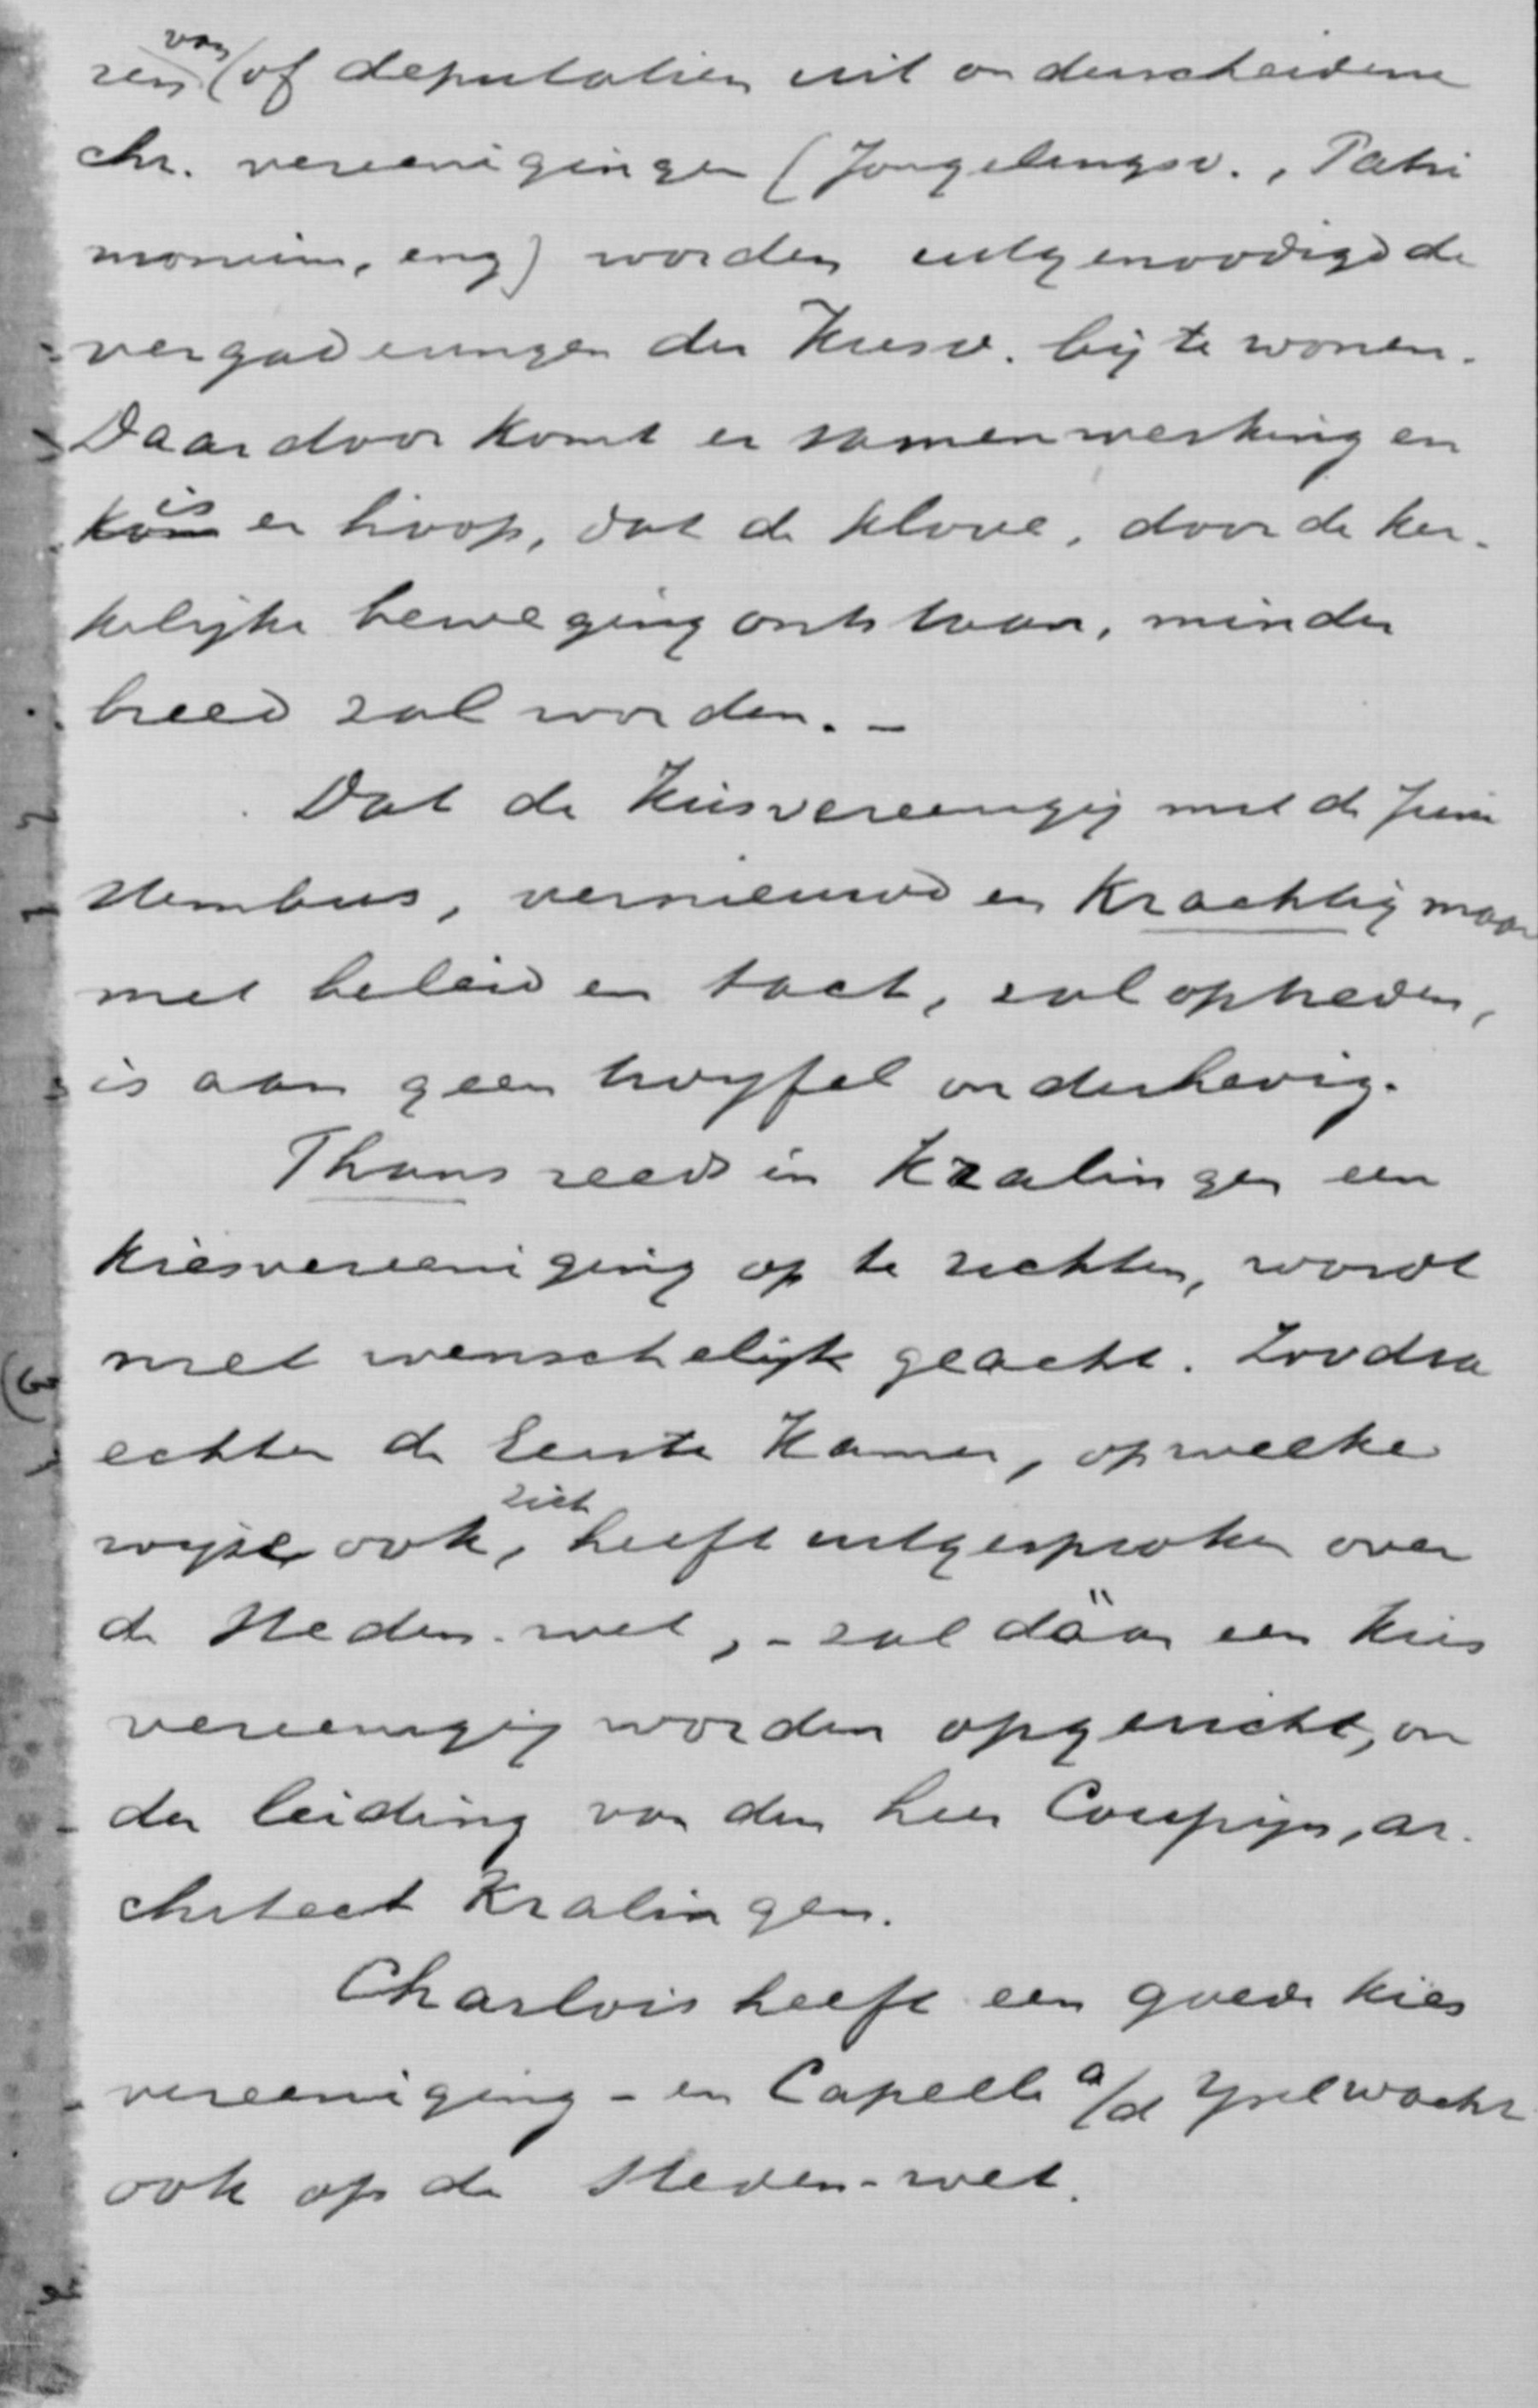 ren van (of deputatien uit onderscheidene
chr. vereenigingen (Jongelingsv., Patri
monium, enz) worden uitgenoodigd de
vergaderingen der Kiesv. bij te wonen.
Daardoor komt er samenwerking en
kom is er hoop, dat de klove, door de ker-
kelijke beweging ontstaan, minder
breed zal worden. -
Dat de Kiesvereenigig met de Juni
stembus, vernieuwd en krachtig maar
met beleid en tact, zal optreden,
is aan geen twijfel onderhevig.
Thans reeds in Kralingen een
kiesvereeniging op te richten, wordt
niet wenschelijk geacht. Zoodra
echter de Eerste Kamer, op welke
wijze ook, zich heeft uitgesproken over
de Steden-wet, - zal däär een kies
vereenigig worden opgericht, on
der leiding van den heer Coepijn, ar-
chitect Kralingen.
Charlois heeft een goede kies
vereeniging - en Capelle a/d Yselwacht
ook op de Steden-wet.